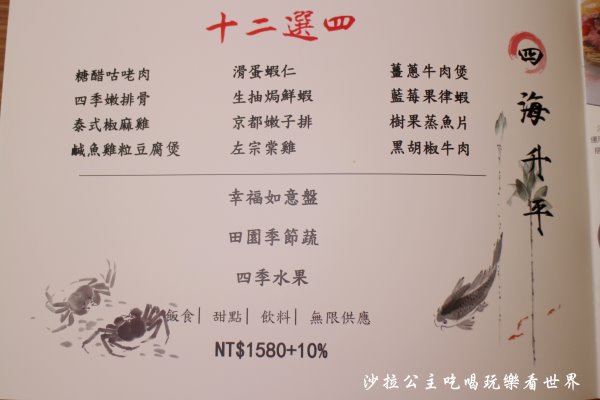 十二選四
糖醋咕咾肉 滑蛋蝦仁 薑蔥牛肉煲
四季嫩排骨 生抽焗鮮蝦 藍莓果律蝦
泰式椒麻雞 京都嫩子排 樹果蒸魚片
鹹魚雞粒豆腐煲 左宗棠雞 黑胡椒牛肉
幸福如意盤
田園季節蔬
四季水果
飯食| 甜點| 飲料| 無限供應
NT$1580+10%
四海升平
沙拉公主吃喝玩樂看世界